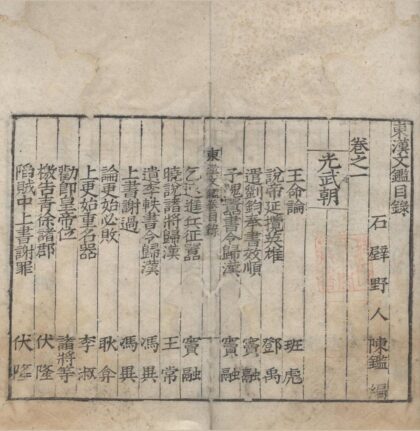 東漢文鑑目錄
石壁野人陳鑑編
卷之一
光武朝
王命論 班彪
說帝延攬英雄 鄧禹
遣劉鈞奉書效順 竇融
子隗囂書令歸漢 竇融
東漢文鑑卷目錄
乞進征囂 竇融
曉說諸將歸漢 王常
遺李軼書令歸漢 馮異
上書謝過 馮異
論更始必敗 耿弇
上更始重名器 李淑
勸即皇帝位 諸將等
檄告青徐諸郡 伏隆
陷賊中上書謝罪 伏隆